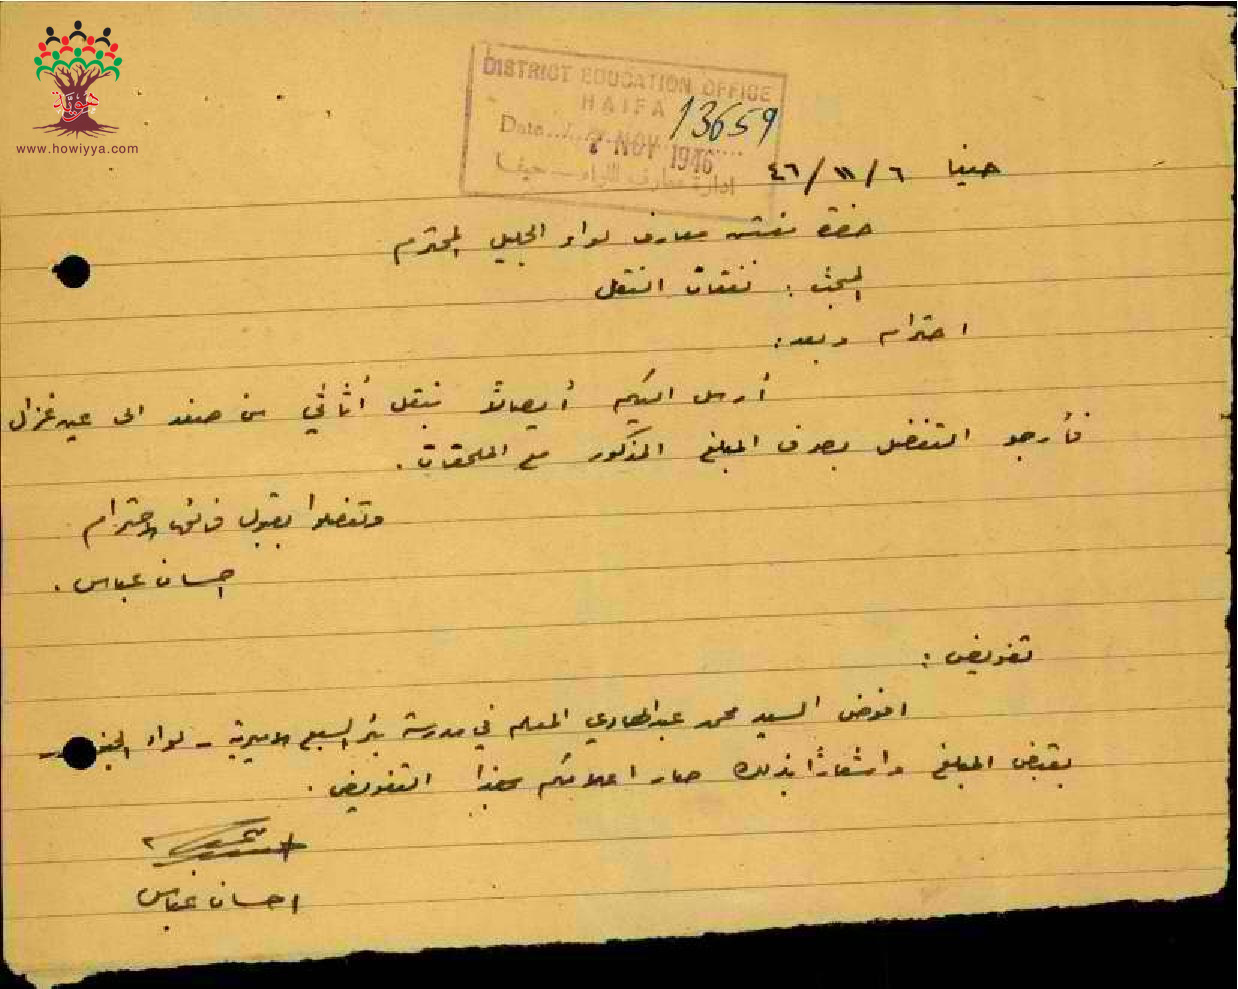 هوية
www.howiyya.com
DISTRICT EDUCATION OFFICE
HAIFA
13659
Date
NOV 1946
ادارة معارف اللواء – حيفا
حيفا ٦/١١/٤٦
حضرة مفتش معارف لواء الجليل المحترم
المبحث : نفقات النقل
احترام وبعد :
أرسل اليكم أيصالاً بنقل أثاثي من صفد الى عين غزال
فأرجو التفضل بصرف المبلغ المذكور مع الملحقات .
وتفضلوا بقبول فائق الاحترام
احسان عباس .
تفويض :
افوض السيد محمد عبدالهادي المعلم في مدرسة بئر السبع الاميرية – لواء
بقبض المبلغ واشعاراً بذلك صار اعلامكم بهذا التفويض .
احسان عباس